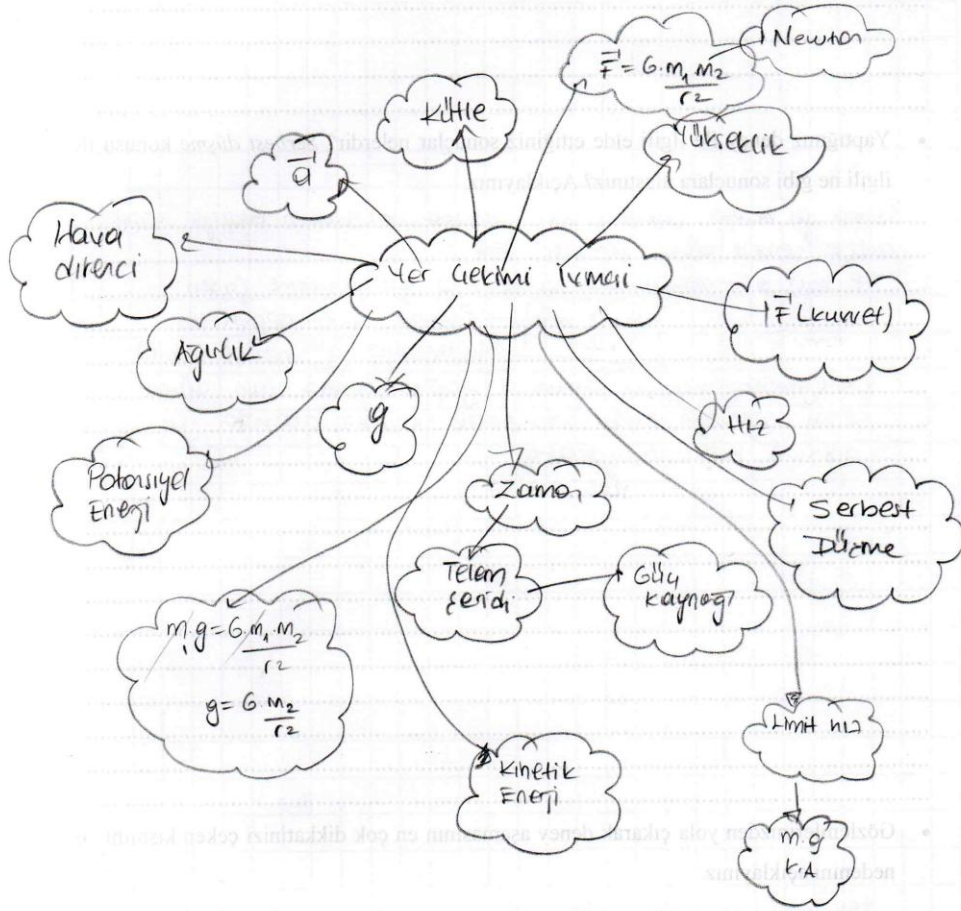 Newton
F⃗ = G.m₁m₂
r²
Kütle
Yükseklik
a⃗
Hava
direnci
Yer Çekimi İvmesi
F⃗ (kuvvet)
Ağırlık
g
Hız
Potansiyel
Enerji
Zaman
Serbest
Düşme
Telem
şeridi
Güç
kaynağı
m₁g = G.m₁.m₂
r²
g = G m₂
r²
Limit hız
Kinetik
Enerji
m.g
K.A
Yaptığınız deneyle ilgili elde ettiğiniz sonuçlar nelerdir? Serbest düşme konusu ile
ilgili ne gibi sonuçlara ulaştınız? Açıklayınız.
Gözlemlerinizden yola çıkarak deney aşamasının en çok dikkatinizi çeken kısmını
nedenini açıklayınız.